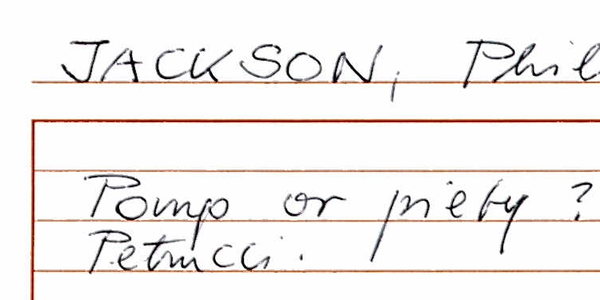 JACKSON, Phil
Pomp or piety ?
Petrucci.